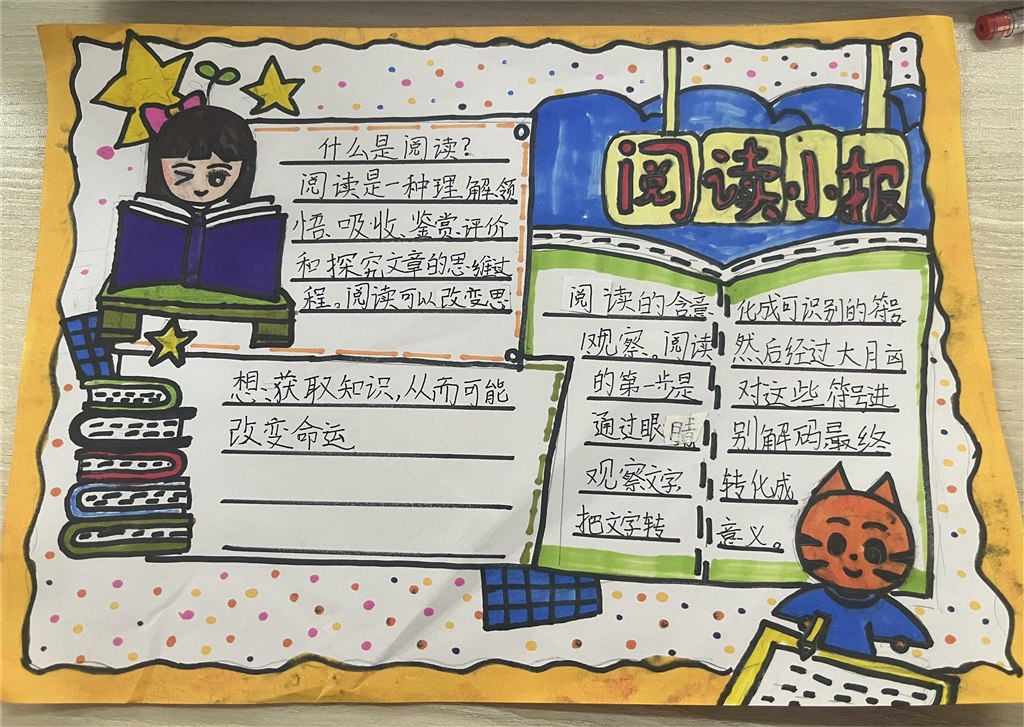 阅读小报
什么是阅读?
阅读是一种理解领
悟、吸收、鉴赏、评价
和探究文章的思维过
程。阅读可以改变思
想、获取知识,从而可能
改变命运
阅读的含意
1观察。阅读
的第一步是
通过眼睛
观察文字
把文字转
化成可识别的符号
然后经过大月囟
对这些符号进
别解码最终
转化成
意义。